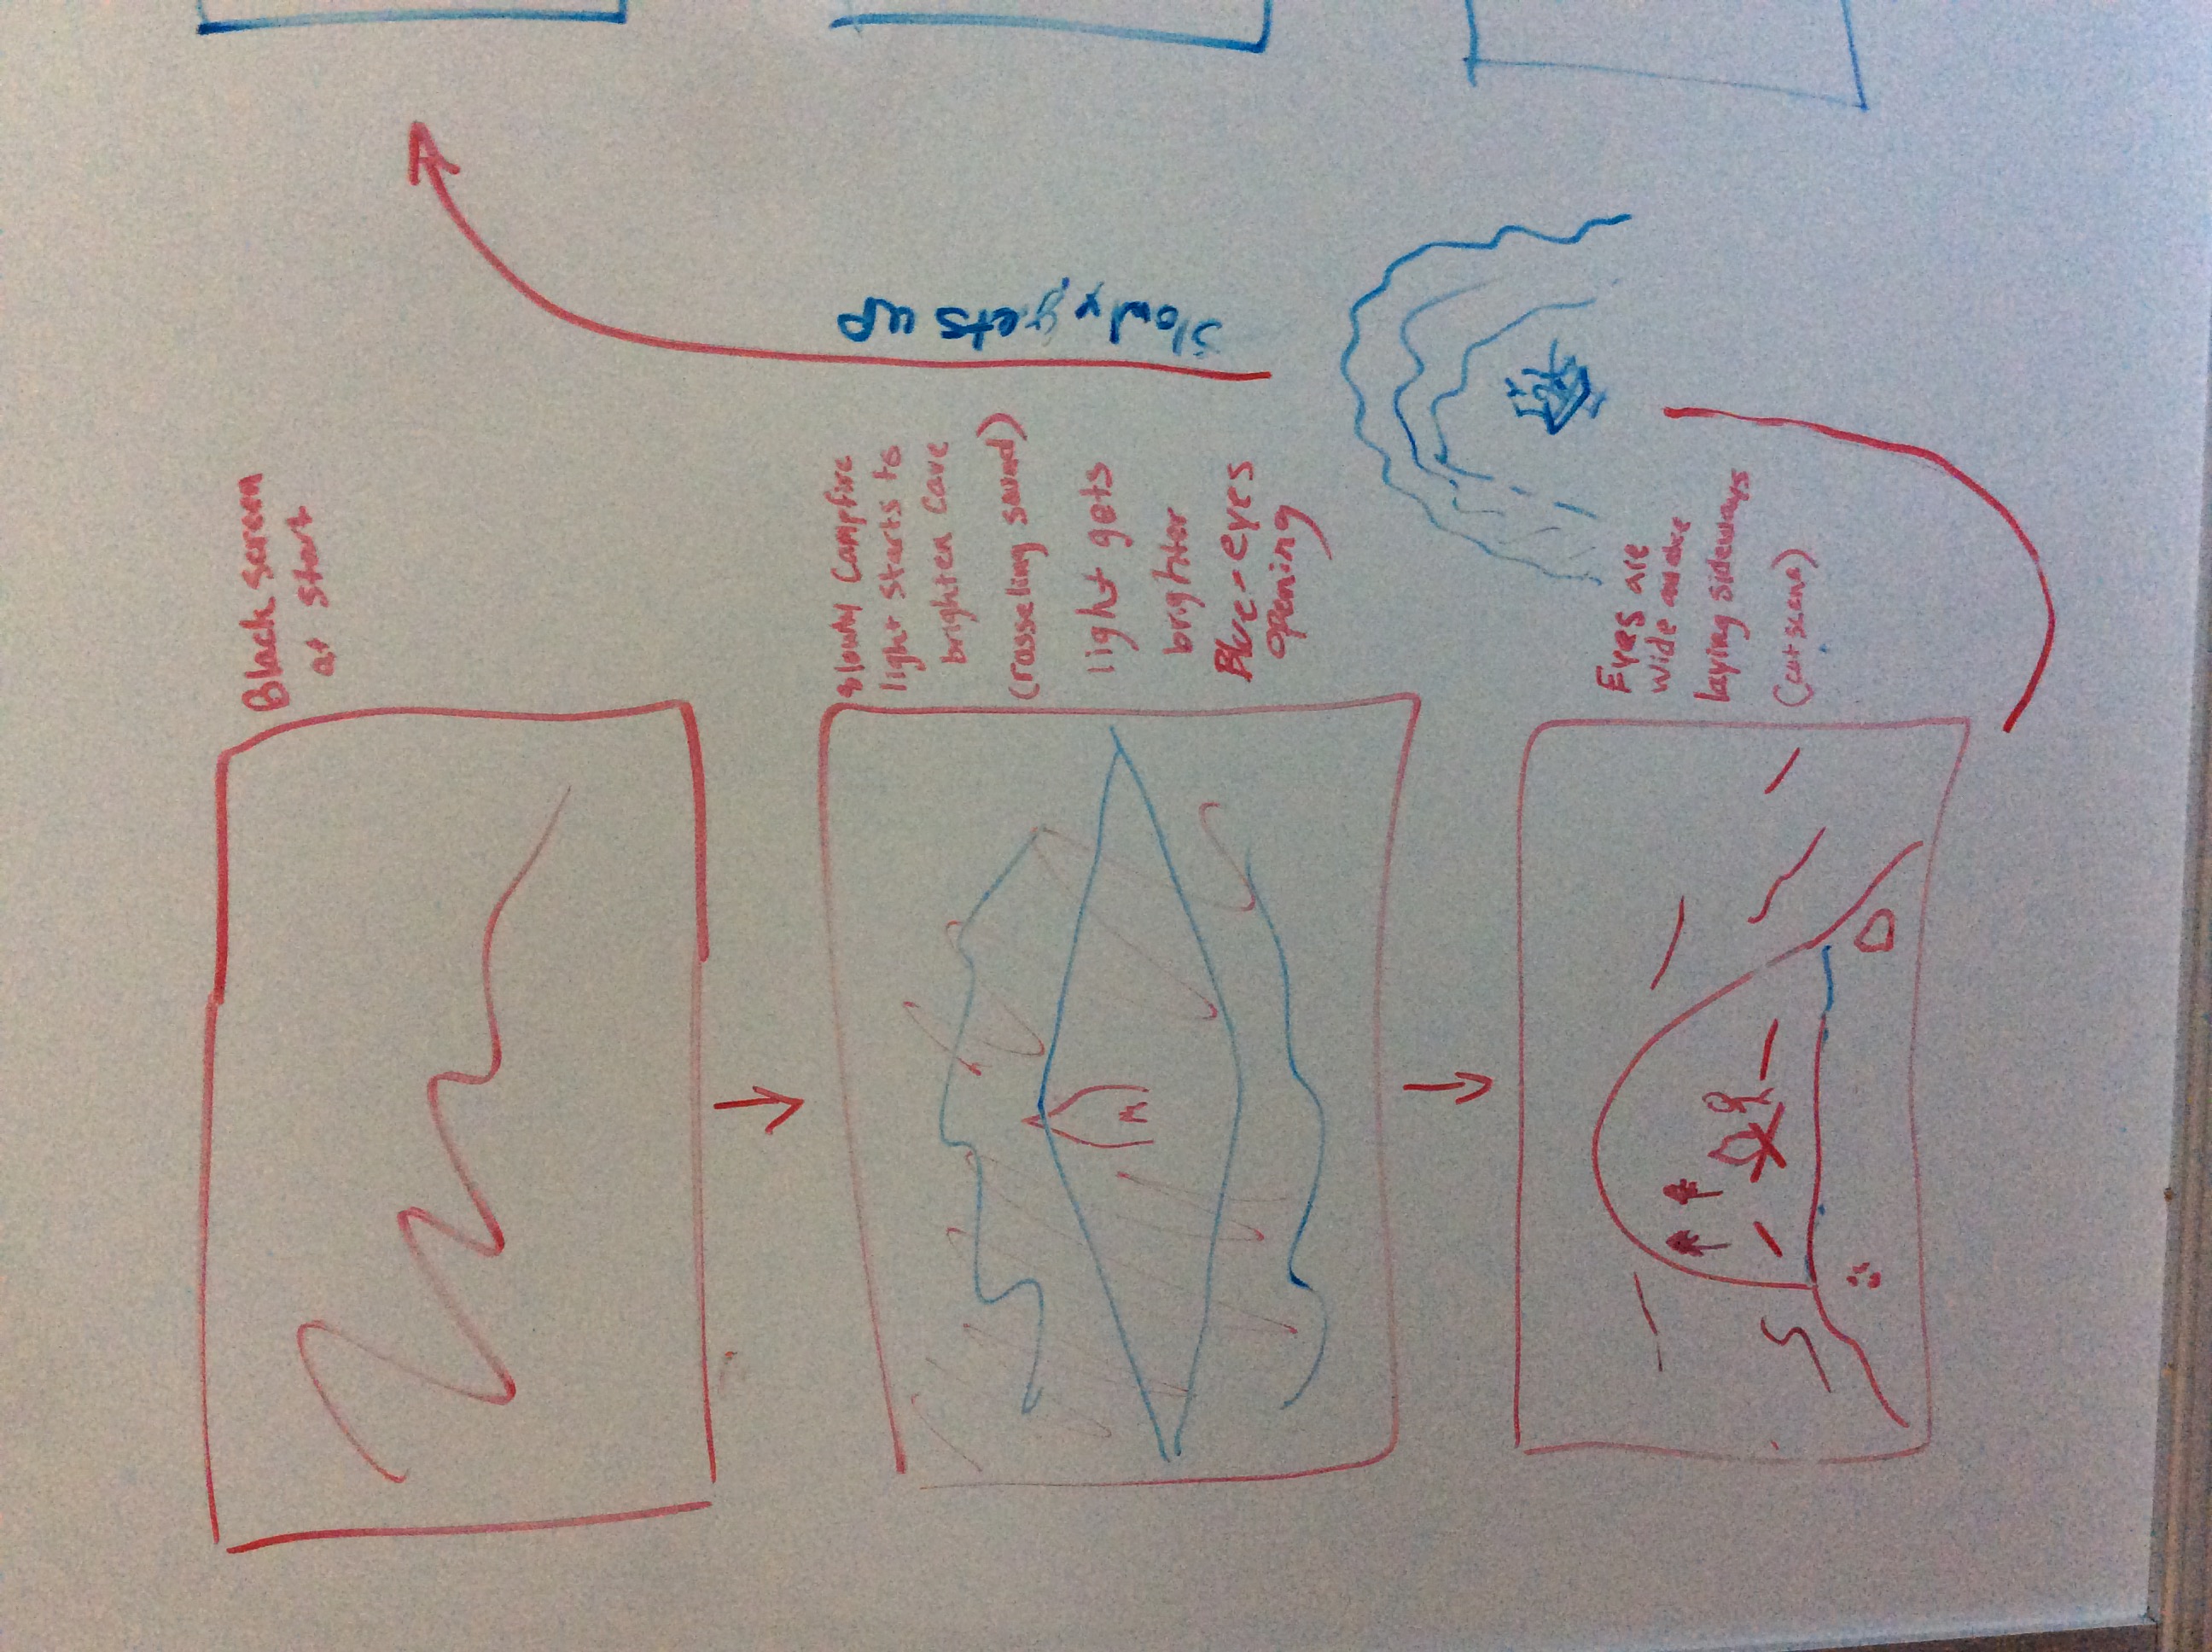 Black screen
at start
slowly Campfire
light starts to
brighten Cave
(rasseling sound)
light gets
brighter
Blue-eyes
opening
Eyes are
wide awake
laying sideways
(cut scene)
slowly gets up